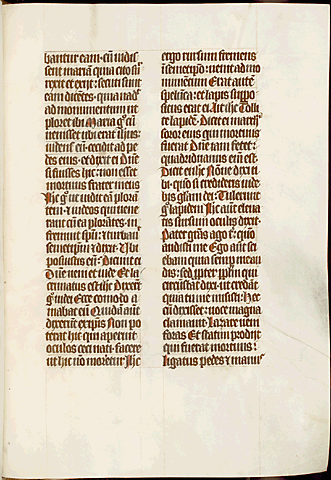 bantur eam · cū vidis
sent mariam quia cito sur
rexit et exijt : secuti sunt
eam dicētes · quia vadit
ad monumentum ut
ploret ibi Maria gͦ cū
venisset ubi erat ihūs ·
videns eū · cecidit ad pe
des eius · et dixit ei Dñe
si fuisses hic · non esset
mortuus frater meus
Ihc gͦ ut vidit eā plorā
tem · et iudeos qui vene
rant cū ea plorātes · in
fremuit spū : et turbauit
semetipm et dixit · Ubi
posuistis eū · Dicunt ei
Dñe veni et vide Et la
crimatus est ihc Dixerūt
gͦ iudei Ecce quomodo a
mabat eū Quidā aūt
dixerūt ex ipis Non po
terat hic qui aperuit
oculos ceci nati · facere
ut hic nō moretur Ihc
ergo rursum fremens
in semetipō : venit ad mo
numentum Erat autē
spelūca : et lapis suppo
situs erat ei Ait ihc Tolli
te lapidē · Dicit ei martha
soror eius qui mortuus
fuerat Dñe iam fetet :
quadriduanus enī est ·
Dicit ei ihc Nōne dixi ti
bi · quō si credideris vide
bis glām dei · Tulerunt
gͦ lapidem Ihc aūt eleua
tis sursum oculis dixit ·
Pater grās ago ti · qm̄
audisti me Ego aūt sci
ebam quia semp me au
dis : sed ppter pplm qui
circūstat dixi · ut credāt
quia tu me misisti · Hec
cū dixisset : voce magna
clamauit Lazare veni
foras Et statim prodijt
qui fuerat mortuus :
ligatus pedes et manus